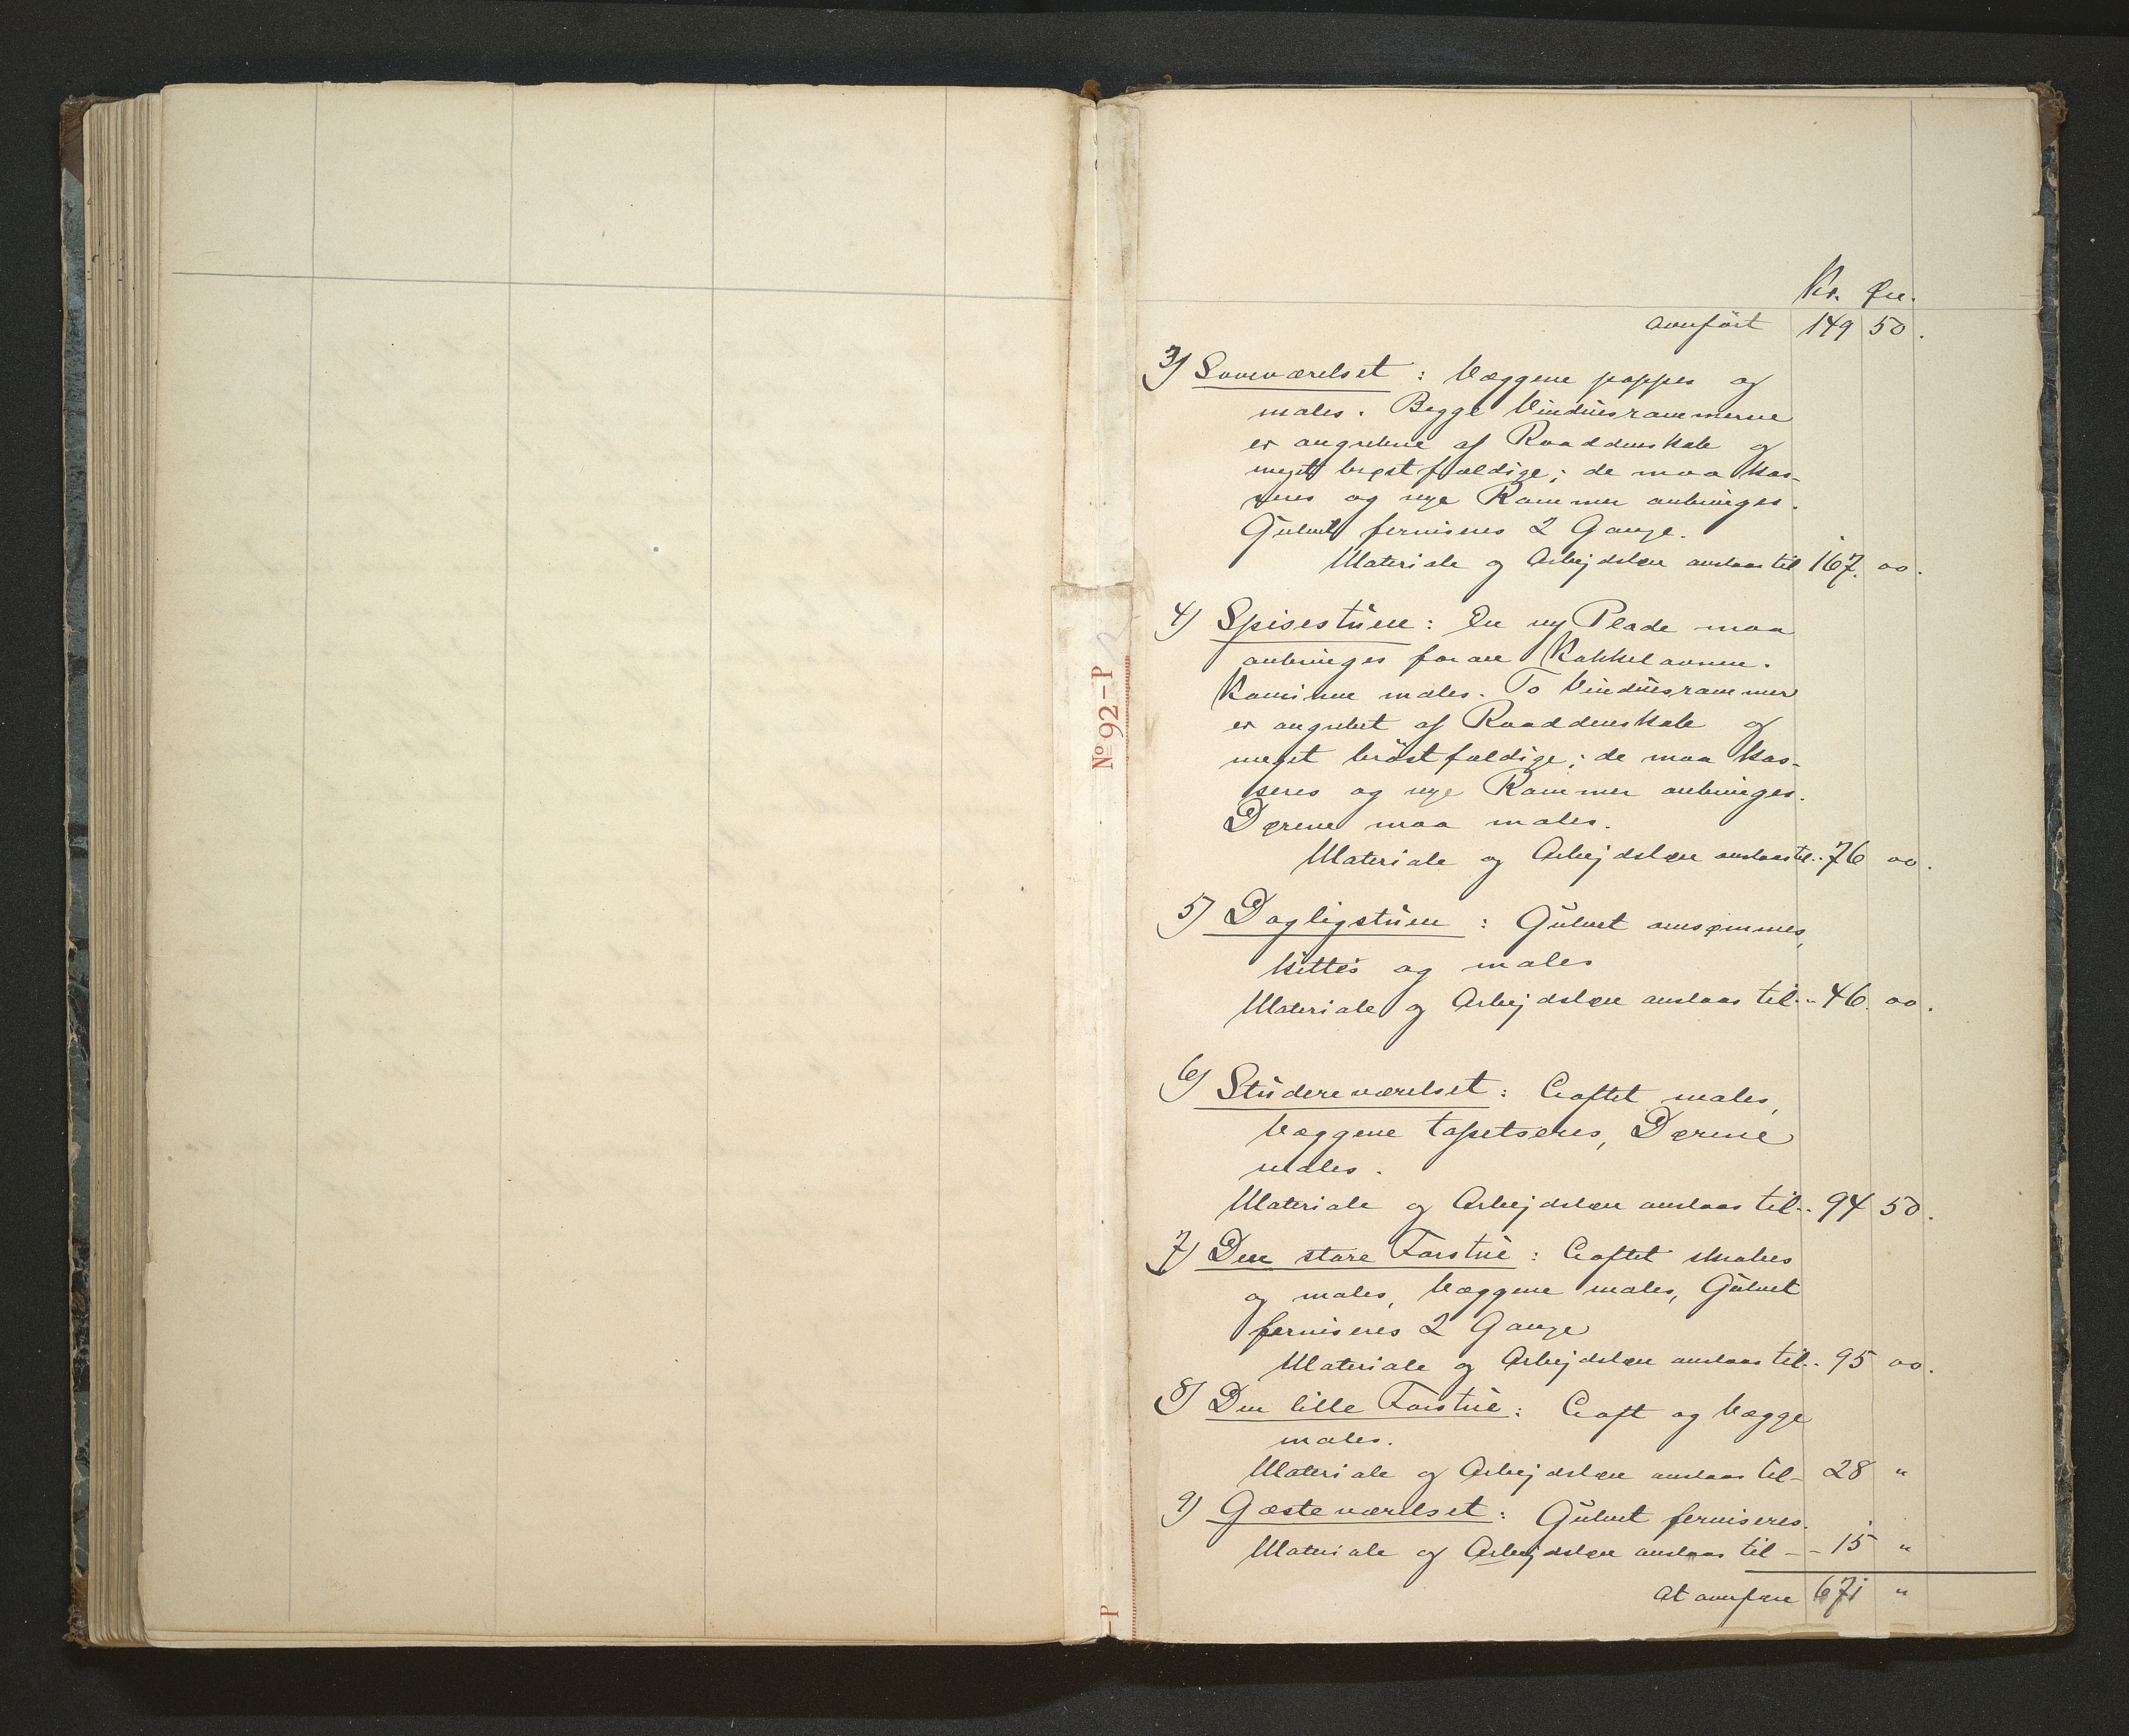 Kr. Øre.
overført 149 50.
3) Soveværelset: Væggene pappes og
males. Begge Vinduesrammerne
er angrebne af Raaddenskab og
meget brøstfældige; de maa kas-
seres og nye Rammer anbringes.
Gulvet ferniseres 2 Gange.
Materiale og Arbejdsløn anslaaes til 167. 00.
4) Spisestuen: En ny Plade maa
anbringes foran Kakkelovnen.
Kaminen males. To Vinduesrammer
er angrebet af Raaddenskab og
meget brøstfældige; de maa kas-
seres og nye Rammer anbringes.
Dørene maa males.
Materiale og Arbejdsløn anslaaes til.. 76 00.
5) Dagligstuen: Gulvet omsømmes,
kittes og males
Materiale og Arbejdsløn anslaaes til.. 46. 00.
6) Studereværelset: Loftet males,
Væggene tapetseres, Dørene
males.
Materiale og Arbejdsløn anslaaes til.. 94 50.
7) Den store Forstue: Loftet skrabes
og males, Væggene males, Gulvet
ferniseres 2 Gange
Materiale og Arbejdsløn anslaaes til.. 95 00.
8) Den lille Forstue: Loft og Vægge
males.
Materiale og Arbejdsløn anslaaes til - 28 "
9) Gæsteværelset: Gulvet ferniseres.
Materiale og Arbejdsløn anslaaes til - - 15 "
at overføre 671 "
No 92-P
-P